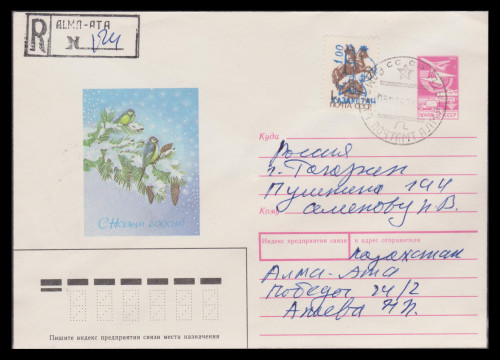 R
ALMA-ATA
N 124
1.00
КАЗАХСТАН
ПОЧТА СССР
С Новым годом!
Куда
Россия
г. Таганрог
Пушкина 144
Кому
Семенову П В.
Индекс предприятия связи и адрес отправителя
Казахстан
Алма-Ата
Победы 74/2
Пишите индекс предприятия связи места назначения